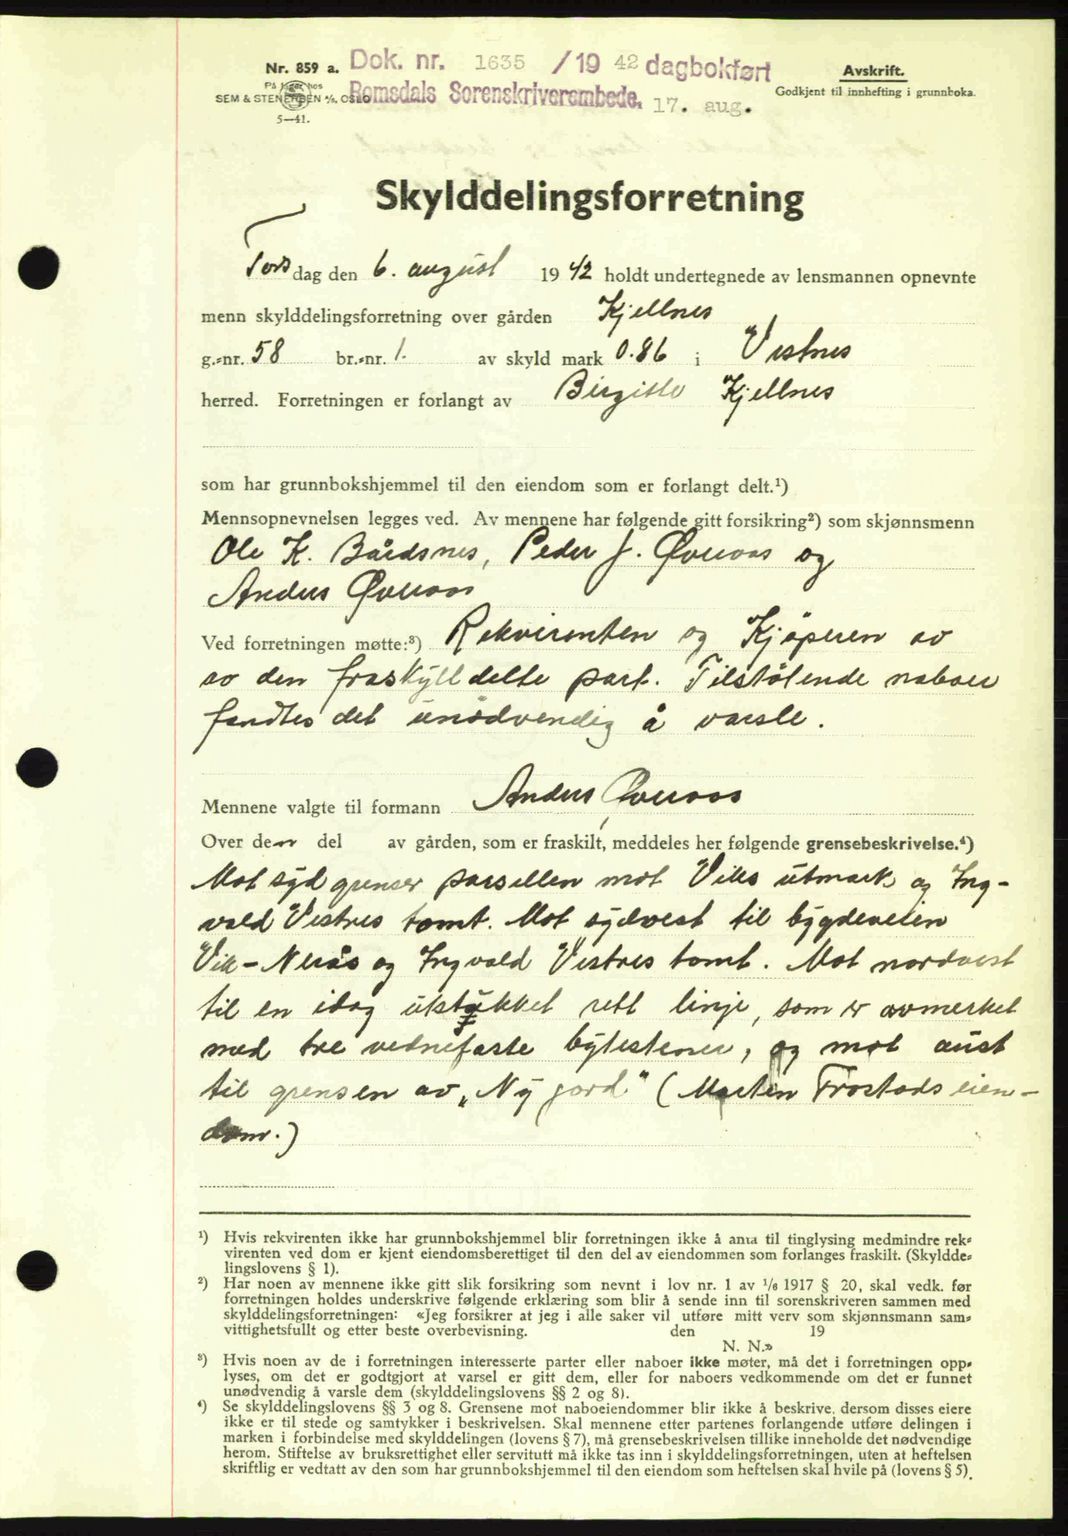 Nr. 859 a.
På lager hos
SEM & STENERSEN A/S, OSLO
5—41.
Dok. nr. 1635 /19 42 dagbokført
Romsdals Sorenskriverembede. 17. aug.
Avskrift.
Godkjent til innhefting i grunnboka.
Skylddelingsforretning
Torsdag den 6. august 1942 holdt undertegnede av lensmannen opnevnte
menn skylddelingsforretning over gården Kjellnes
g.-nr. 58 br.-nr. 1. av skyld mark 0.86 i Vestnes
herred. Forretningen er forlangt av Birgitte Kjellnes
som har grunnbokshjemmel til den eiendom som er forlangt delt.¹)
Mennsopnevnelsen legges ved. Av mennene har følgende gitt forsikring²) som skjønnsmenn
Ole K. Bårdsnes, Peder J. Øveraas og
Anders Øveraas
Ved forretningen møtte:³) Rekvirenten og Kjöperen av
av den fraskylldelte part. Tilstøtende naboer
fandtes det unödvendig å varsle.
Mennene valgte til formann Anders Øveraas
Over den del av gården, som er fraskilt, meddeles her følgende grensebeskrivelse.⁴)
Mot syd grenser parsellen mot Viks utmark og Ing-
vald Vestres tomt. Mot sydvest til bygdeveien
Vik-Nerås og Ingvald Vestres tomt. Mot nordvest
til en idag utstukket rett linje, som er avmerket
med tre vednefaste bytestener, og mot aust
til grensen av "Ny jord" (Martin Frostads eien-
dom.)
¹) Hvis rekvirenten ikke har grunnbokshjemmel blir forretningen ikke å anta til tinglysing medmindre rek-
virenten ved dom er kjent eiendomsberettiget til den del av eiendommen som forlanges fraskilt. (Skyldde-
lingslovens § 1).
²) Har noen av mennene ikke gitt slik forsikring som nevnt i lov nr. 1 av ¹/₆ 1917 § 20, skal vedk. før
forretningen holdes underskrive følgende erklæring som blir å sende inn til sorenskriveren sammen med
skylddelingsforretningen: «Jeg forsikrer at jeg i alle saker vil utføre mitt verv som skjønnsmann sam-
vittighetsfullt og etter beste overbevisning. den 19
N. N.»
³) Hvis noen av de i forretningen interesserte parter eller naboer ikke møter, må det i forretningen opp-
lyses, om det er godtgjort at varsel er gitt dem, eller for naboers vedkommende om det er funnet
unødvendig å varsle dem (skylddelingslovens §§ 2 og 8).
⁴) Se skylddelingslovens §§ 3 og 8. Grensene mot naboeiendommer blir ikke å beskrive, dersom disses eiere
ikke er til stede og samtykker i beskrivelsen. Skal mennene etter partenes forlangende utføre delingen i
marken i forbindelse med skylddelingen (lovens § 7), må grensebeskrivelsen tillike inneholde det nødvendige
herom. Stiftelse av bruksrettighet eller servitutt må ikke tas inn i skylddelingsforretningen, uten at heftelsen
skriftlig er vedtatt av den som har grunnbokshjemmel til den eiendom som heftelsen skal hvile på (lovens § 5).